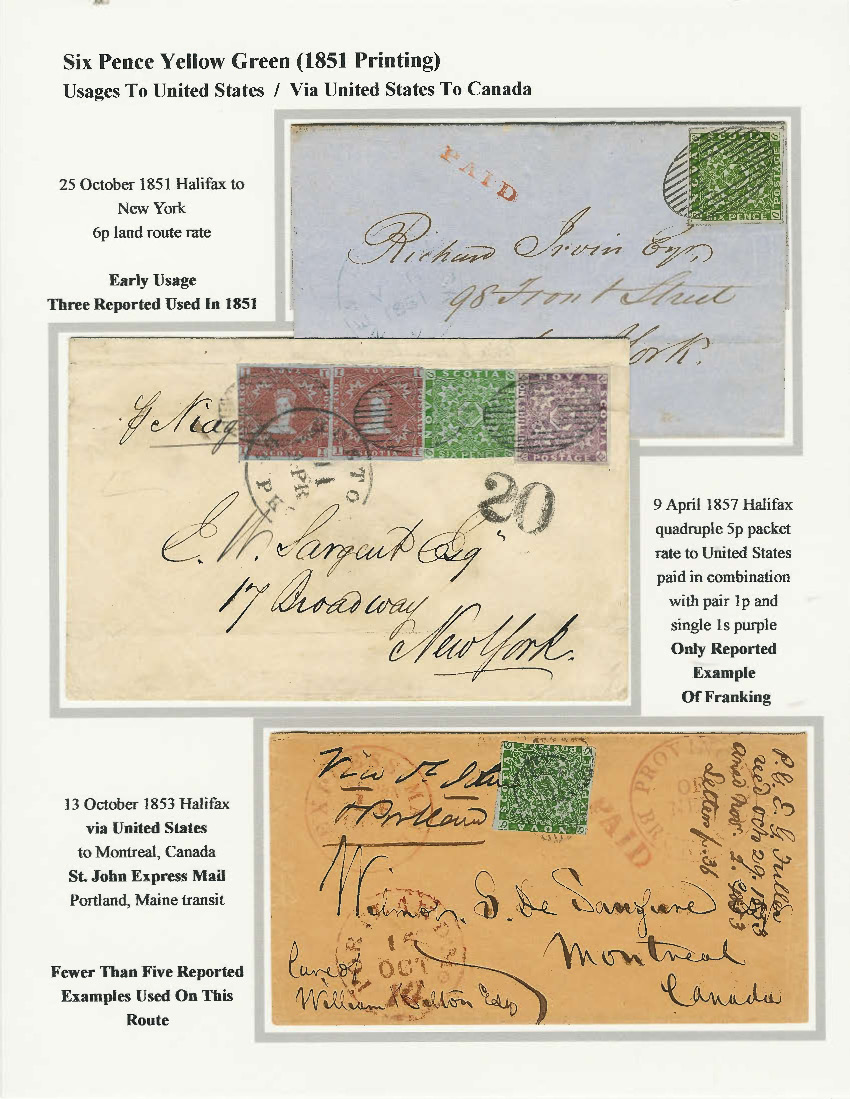 Six Pence Yellow Green (1851 Printing)
Usages To United States / Via United States To Canada
25 October 1851 Halifax to
New York
6p land route rate
Early Usage
Three Reported Used In 1851
PAID
NOVA SCOTIA
SIX PENCE
POSTAGE
Richard Irvin Esqr,
98 Front Street
York.
NOVA
SCOTIA
SCOTIA
NOVA
SIX PENCE
NOVA
POSTAGE
20
E. W. Sargent Esq
17 Broadway
New York.
9 April 1857 Halifax
quadruple 5p packet
rate to United States
paid in combination
with pair 1p and
single 1s purple
Only Reported
Example
Of Franking
13 October 1853 Halifax
via United States
to Montreal, Canada
St. John Express Mail
Portland, Maine transit
Fewer Than Five Reported
Examples Used On This
Route
Via St
Portland
PAID
EXPRESS MAIL
Montreal
Canada
OCT
Care of
William